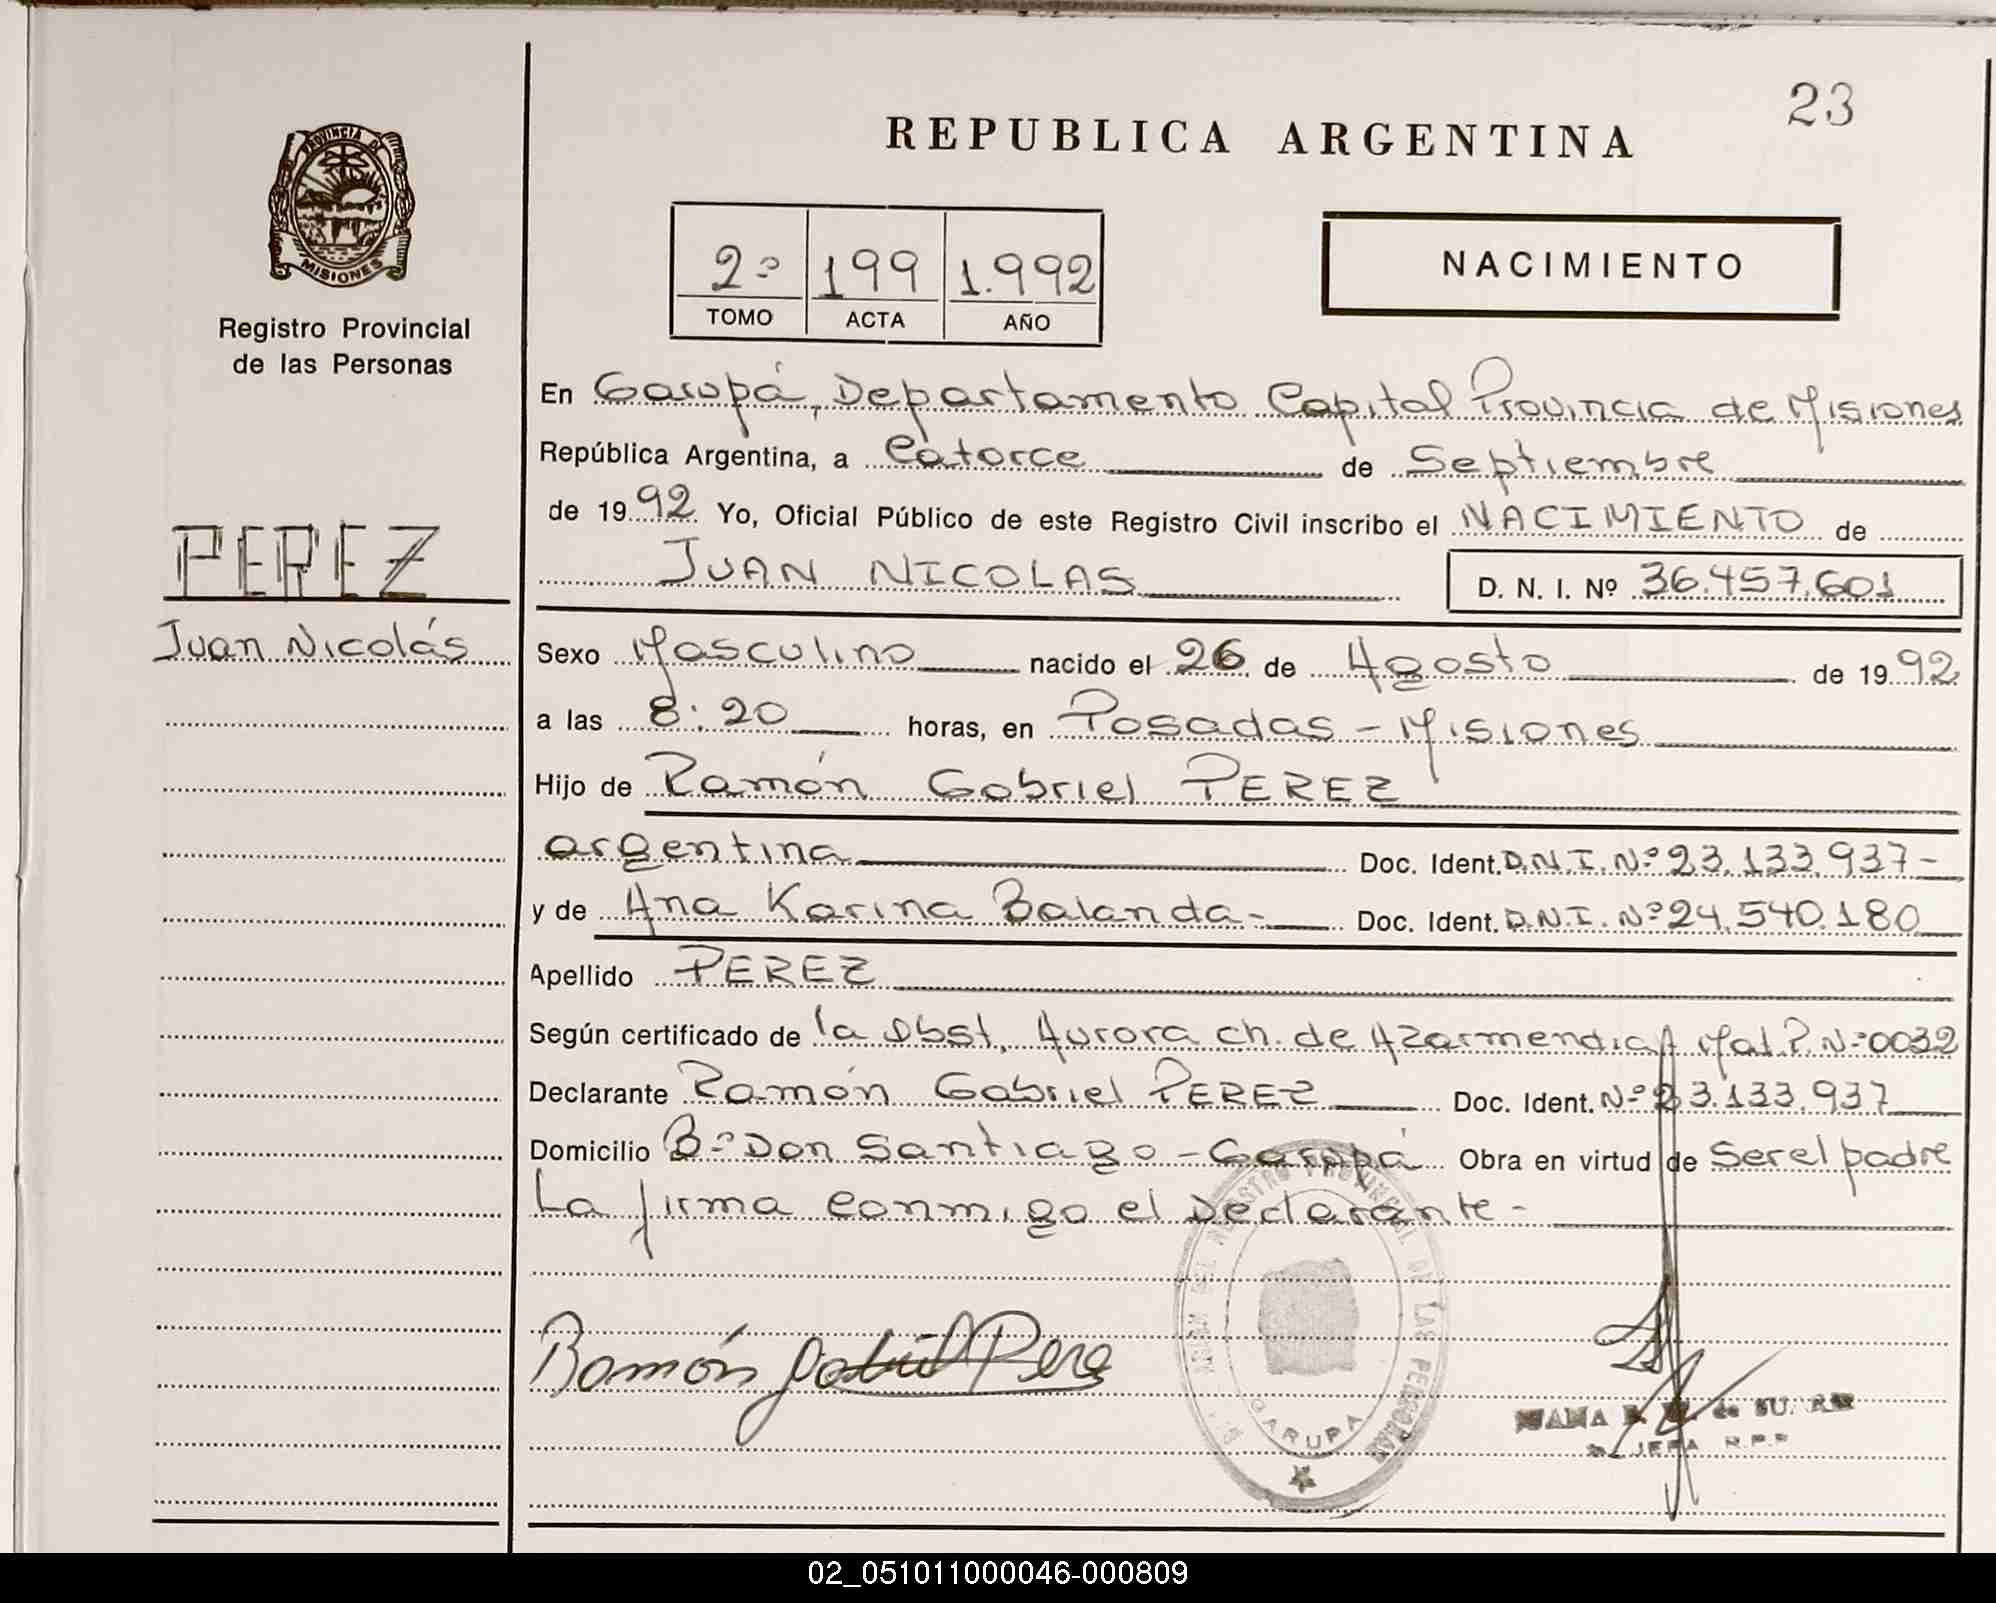 23
REPUBLICA ARGENTINA
PROVINCIA DE
MISIONES
Registro Provincial
de las Personas
2º 199 1.992
TOMO ACTA AÑO
NACIMIENTO
En Garupá, Departamento Capital Provincia de Misiones
República Argentina, a Catorce de Septiembre
de 1992 Yo, Oficial Público de este Registro Civil inscribo el NACIMIENTO de
JUAN NICOLAS D. N. I. Nº 36.457.601
PEREZ
Juan Nicolás
Sexo Masculino nacido el 26 de Agosto de 1992
a las 8:20 horas, en Posadas - Misiones
Hijo de Ramón Gabriel PEREZ
argentina Doc. Ident. D.N.I. Nº 23.133.937-
y de Ana Karina Balanda- Doc. Ident. D.N.I. Nº 24.540.180
Apellido PEREZ
Según certificado de la Obst. Aurora ch. de Azarmendia Mat. P. Nº 0032
Declarante Ramón Gabriel PEREZ Doc. Ident. Nº 23.133.937
Domicilio Bº Don Santiago - Garupá Obra en virtud de Ser el padre
La firma conmigo el Declarante -
Ramón Gabriel Perez
REGISTRO PROVINCIAL DE LAS PERSONAS
GARUPA
JEFA R.P.P
02_051011000046-000809